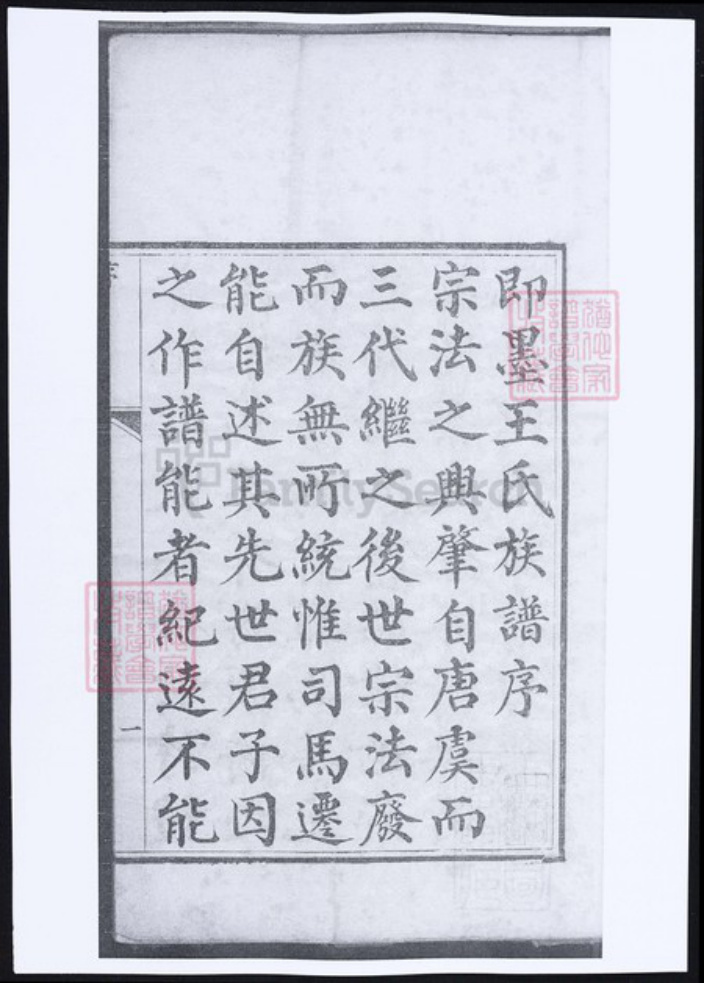 即墨王氏族譜序
宗法之興肇自唐虞而
三代繼之後世宗法廢
而族無所統惟司馬遷
能自述其先世君子因
之作譜能者紀遠不能
序
一
FamilySearch